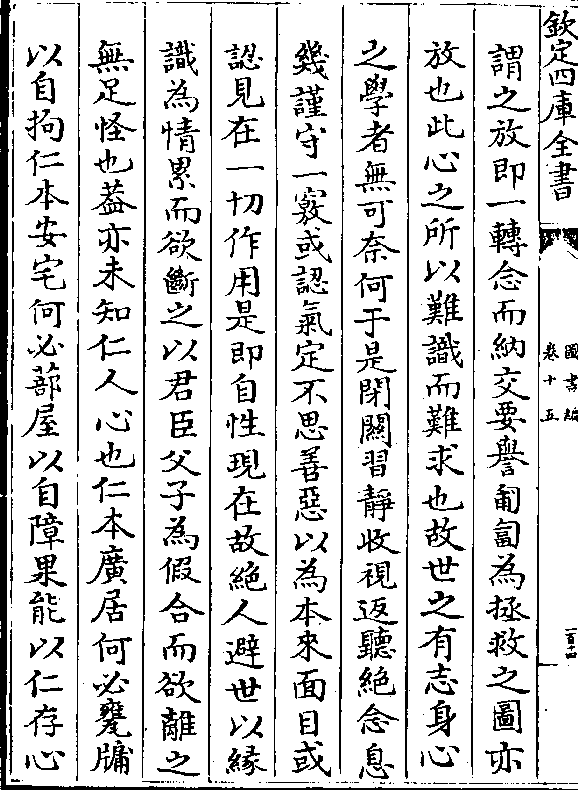 欽定四庫全書
圖書編
卷十五
謂之放即一轉念而納交要譽匍匐為拯救之圖亦
放也此心之所以難識而難求也故世之有志身心
之學者無可奈何于是閉關習靜收視返聽絶念息
幾謹守一竅或認氣定不思善惡以為本來面目或
認見在一切作用是即自性現在故絶人避世以縁
識為情累而欲斷之以君臣父子為假合而欲離之
無足怪也葢亦未知仁人心也仁本廣居何必甕牖
以自拘仁本安宅何必蔀屋以自障果能以仁存心